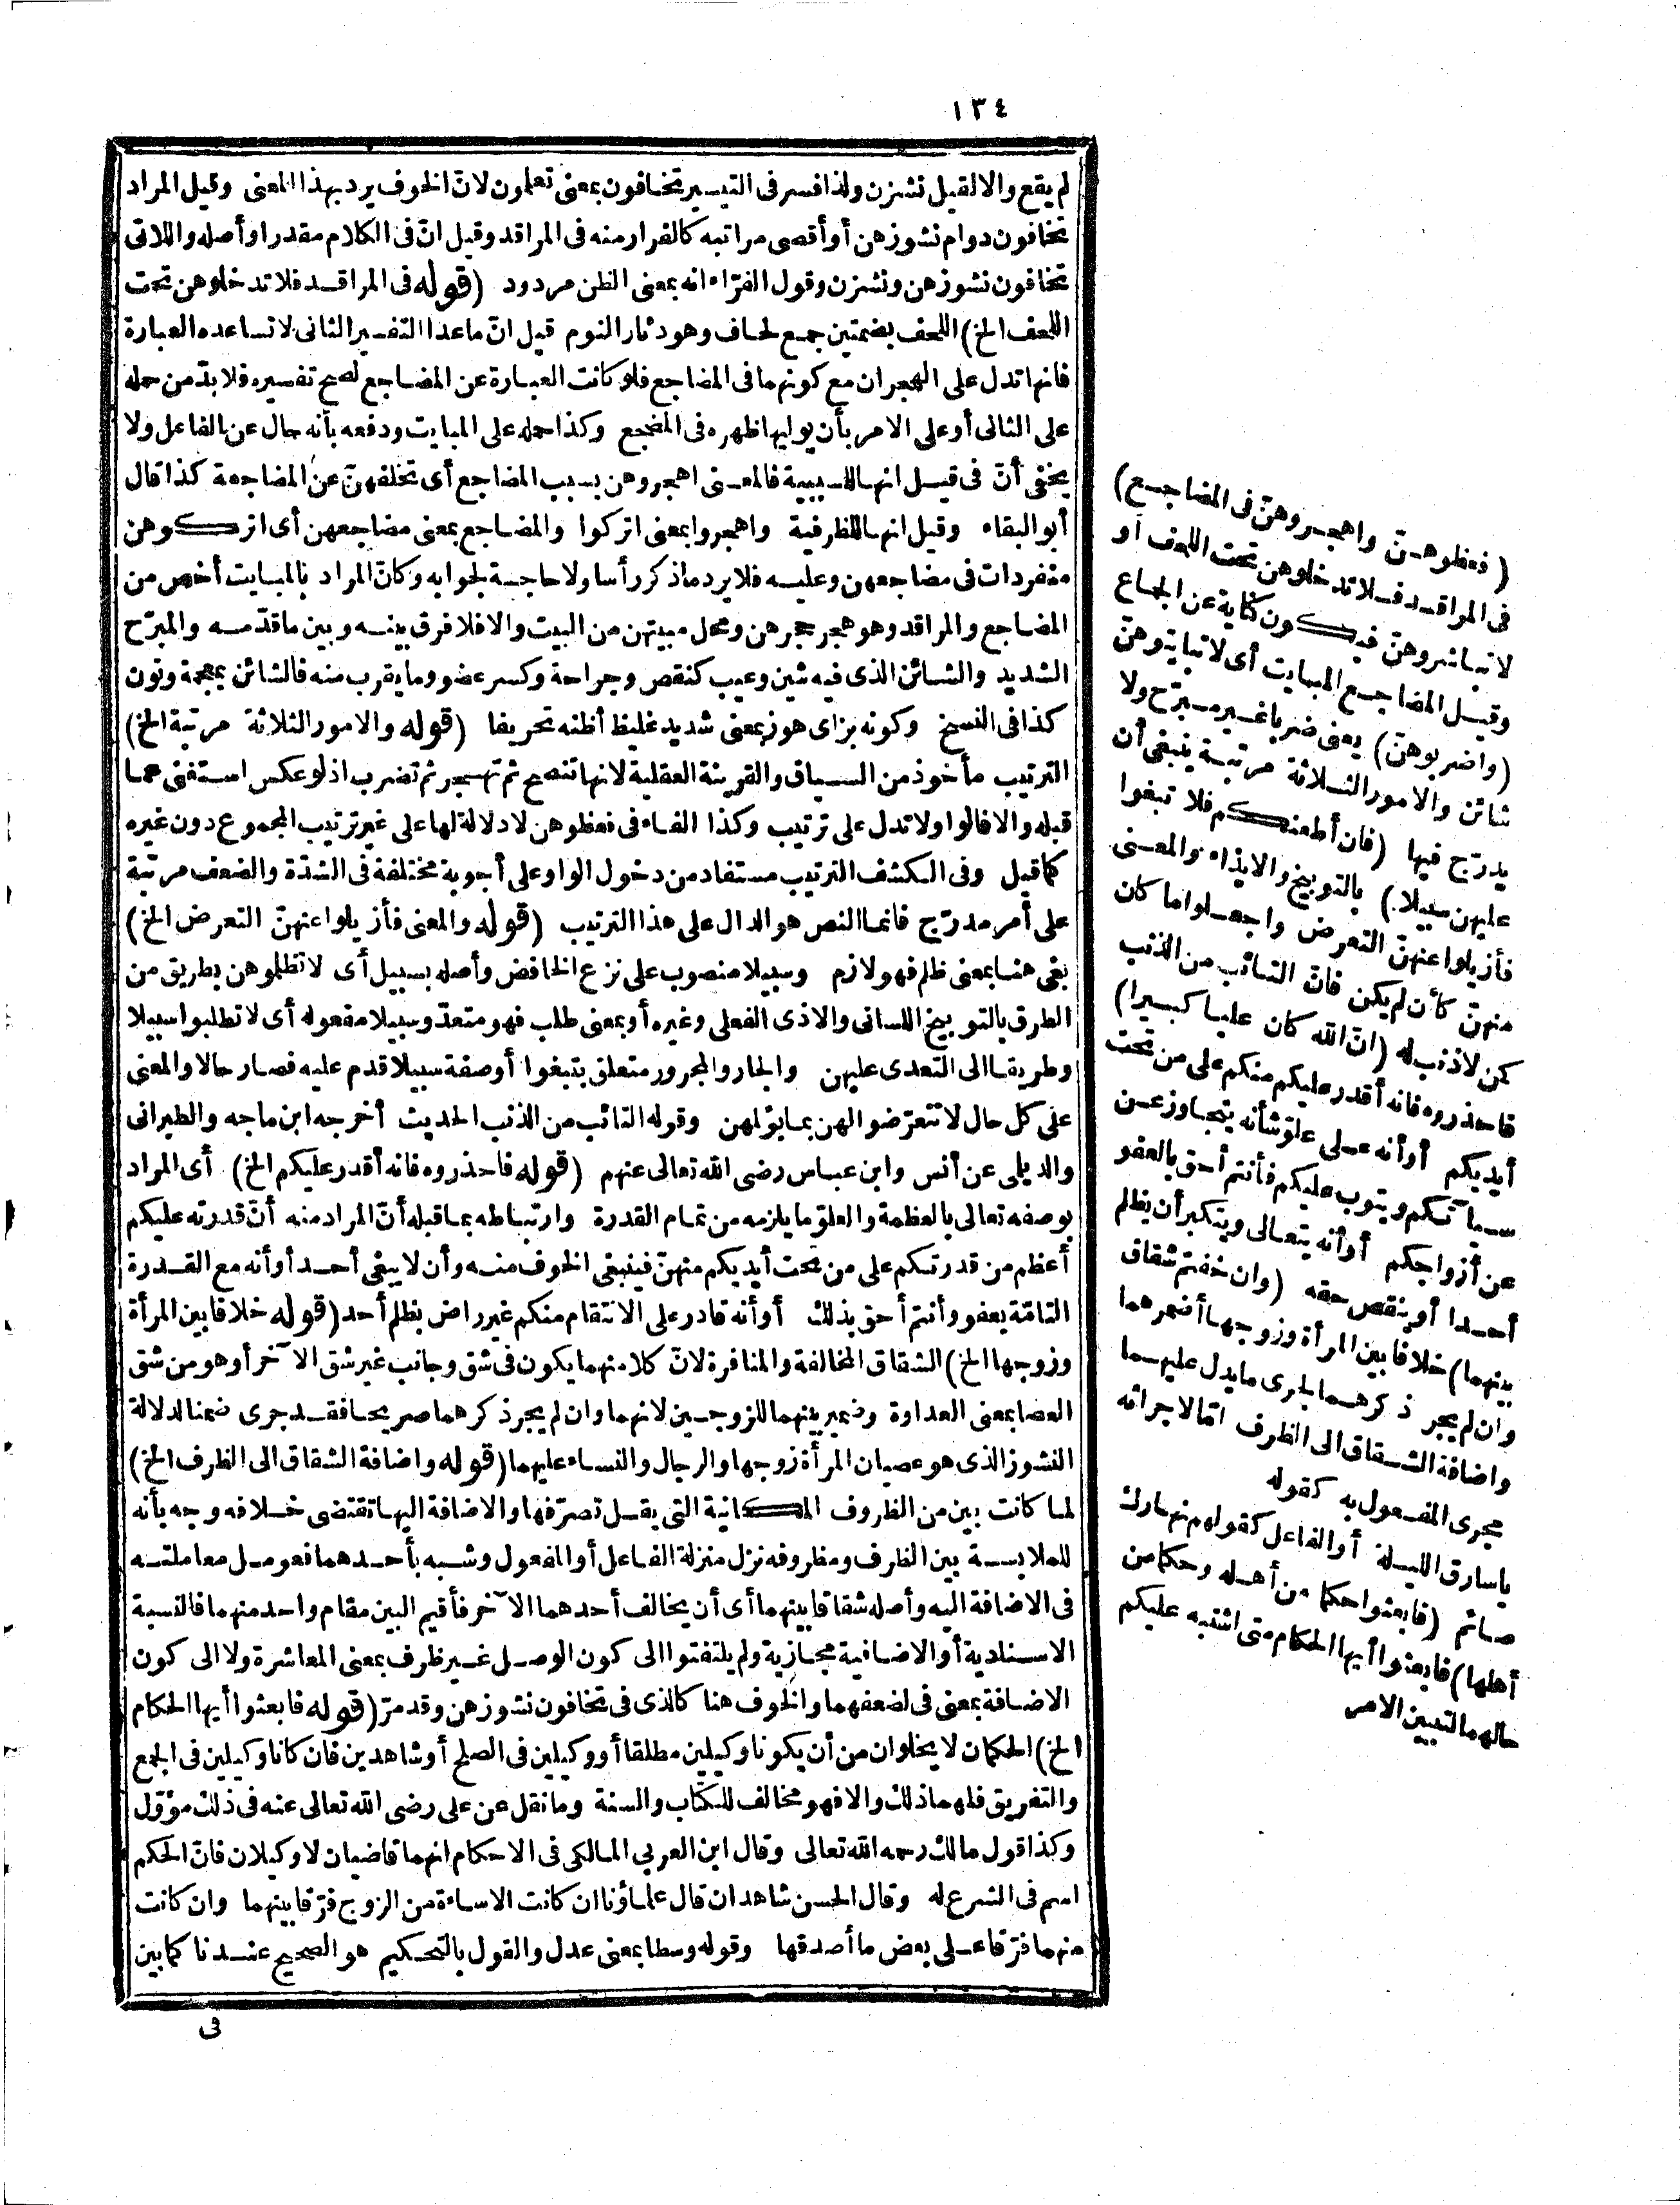 ١٣٤
لم يقع والا لقيل نشزن ولذا فسر فى التيسير تخافون بمعنى تعلمون لانّ الخوف يرد بهذا المعنى وقيل المراد
تخافون دوام نشوزهن أو أقصى مراتبه كالفرار منه فى المراقد وقيل انّ فى الكلام مقدرا وأصله واللاتى
تخافون نشوزهن ونشزن وقول الفرّاء انه بمعنى الظن مردود (قوله فى المراقد فلا تدخلوهن تحت
اللحف الخ) اللحف بضمتين جمع لحاف وهو دثار النوم قيل انّ ماعدا التفسير الثانى لا تساعده العبارة
فانها تدل على الهجران مع كونهما فى المضاجع فلو كانت العبارة عن المضاجع لصح تفسيره فلا بدّ من حمله
على الثانى أو على الامر بأن يوليها ظهره فى المضجع وكذا حمله على المبايت ودفعه بأنه حال عن الفاعل ولا
يخفى أنّ فى قيل انها للسببية فالمعنى اهجروهن بسبب المضاجع أى تخلفهنّ عن المضاجعة كذا قال
أبو البقاء وقيل انها للظرفية واهجروا بمعنى اتركوا والمضاجع بمعنى مضاجعهن أى اتركوهن
منفردات فى مضاجعهن وعليه فلا يرد ماذكر رأسا ولا حاجة لجوابه وكانّ المراد بالمبايت أخص من
المضاجع والمراقد وهو هجر حجرهن ومحل مبيتهن من البيت والا فلا فرق بينه وبين ماقدّمه والمبرّح
الشديد والشائن الذى فيه شين وعيب كنقص وجراحة وكسر عضو وما يقرب منه فالشائن بمعجمة ونون
كذا فى النسخ وكونه بزاى هوز بمعنى شديد غليظ أظنه تحريفا (قوله والامور الثلاثة مرتبة الخ)
الترتيب مأخوذ من السياق والقرينة العقلية لانها تنصح ثم تهجر ثم تضرب اذ لو عكس استغنى عما
قبله والا فالواو لا تدل على ترتيب وكذا الفاء فى فعظوهن لا دلالة لها على غير ترتيب المجموع دون غيره
كما قيل وفى الكشف الترتيب مستفاد من دخول الواو على أجوبة مختلفة فى الشدّة والضعف مرتبة
على أمر مدرّج فانما النص هو الدال على هذا الترتيب (قوله والمعنى فأزيلوا عنهنّ التعرض الخ)
بغى هنا بمعنى ظلم فهو لازم وسبيلا منصوب على نزع الخافض وأصله بسبيل أى لا تظلموهن بطريق من
الطرق بالتوبيخ اللسانى والاذى الفعلى وغيره أو بمعنى طلب فهو متعدّ وسبيلا مفعوله أى لا تطلبوا سبيلا
وطريقا الى التعدى عليهن والجار والمجرور متعلق بتبغوا أو صفة سبيلا قدم عليه فصار حالا والمعنى
على كل حال لا تتعرّضوا لهن بما يؤلمهن وقوله التائب من الذنب الحديث أخرجه ابن ماجه والطبرانى
والديلمى عن أنس وابن عباس رضى الله تعالى عنهم (قوله فاحذروه فانه أقدر عليكم الخ) أى المراد
بوصفه تعالى بالعظمة والعلوّ ما يلزمه من تمام القدرة وارتباطه بما قبله أنّ المراد منه أنّ قدرته عليكم
أعظم من قدرتكم على من تحت أيديكم منهنّ فينبغى الخوف منه وأن لا يبغى أحد أو أنه مع القدرة
التامّة يعفو وأنتم أحق بذلك أو أنه قادر على الانتقام منكم غير راض بظلم أحد (قوله خلافا بين المرأة
وزوجها الخ) الشقاق المخالفة والمنافرة لانّ كلا منهما يكون فى شق وجانب غير شق الآخر أو هو من شق
العصا بمعنى العداوة وضمير بينهما للزوجين لانهما وان لم يجر ذكرهما صريحا فقد جرى ضمنا لدلالة
النشوز الذى هو عصيان المرأة زوجها والرجال والنساء عليهما (قوله واضافة الشقاق الى الظرف الخ)
لما كانت بين من الظروف المكانية التى يقل تصرّفها والاضافة اليها تقتضى خلافه وجه بأنه
للملابسة بين الظرف ومظروفه نزل منزلة الفاعل أو المفعول وشبه بأحدهما فعومل معاملته
فى الاضافة اليه وأصله شقاقا بينهما أى أن يخالف أحدهما الآخر فأقيم البين مقام واحد منهما فالنسبة
الاسنادية أو الاضافية مجازية ولم يلتفتوا الى كون الوصل غير ظرف بمعنى المعاشرة ولا الى كون
الاضافة بمعنى فى لضعفهما والخوف هنا كالذى فى تخافون نشوزهن وقد مرّ (قوله فابعثوا أيها الحكام
الخ) الحكمان لا يخلوان من أن يكونا وكيلين مطلقا أو وكيلين فى الصلح أو شاهدين فان كانا وكيلين فى الجمع
والتفريق فلهما ذلك والا فهو مخالف للكتاب والسنة وما نقل عن على رضى الله تعالى عنه فى ذلك مؤوّل
وكذا قول مالك رحمه الله تعالى وقال ابن العربى المالكى فى الاحكام انهما قاضيان لا وكيلان فانّ الحكم
اسم فى الشرع له وقال الحسن شاهدان قال علماؤنا ان كانت الاساءة من الزوج فرّقا بينهما وان كانت
منهما فرّقا على بعض ما أصدقها وقوله وسطا بمعنى عدل والقول بالتحكيم هو الصحيح عندنا كما بين
فى
(فعظوهنّ واهجروهنّ فى المضاجع)
فى المراقد فلا تدخلوهن تحت اللحف أو
لا تباشروهنّ فيكون كناية عن الجماع
وقيل المضاجع المبايت أى لا تبايتوهنّ
(واضربوهنّ) يعنى ضربا غير مبرّح ولا
شائن والامور الثلاثة مرتبة ينبغى أن
يدرّج فيها (فان أطعنكم فلا تبغوا
عليهن سبيلا) بالتوبيخ والايذاء والمعنى
فأزيلوا عنهنّ التعرض واجعلوا ما كان
منهنّ كأن لم يكن فانّ التائب من الذنب
كمن لا ذنب له (انّ الله كان عليا كبيرا)
فاحذروه فانه أقدر عليكم منكم على من تحت
أيديكم أو أنه على علوّ شأنه يتجاوز عن
سيآتكم ويتوب عليكم فأنتم أحق بالعفو
عن أزواجكم أو أنه يتعالى ويتكبر أن يظلم
أحدا أو ينقص حقه (وان خفتم شقاق
بينهما) خلافا بين المرأة وزوجها أضمرهما
وان لم يجر ذكرهما لجرى ما يدل عليهما
واضافة الشقاق الى الظرف امّا لاجرائه
مجرى المفعول به كقوله
يا سارق الليلة أو الفاعل كقولهم نهارك
صائم (فابعثوا حكما من أهله وحكما من
أهلها) فابعثوا أيها الحكام متى اشتبه عليكم
حالهما لتبيين الامر